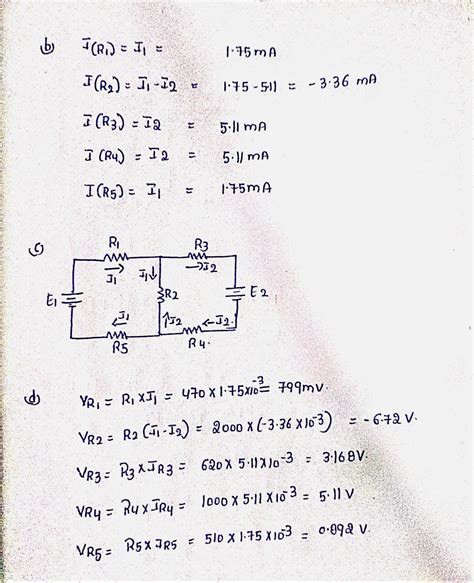 b) I(R1) = I1 = 1.75mA
I(R2) = I1-I2 = 1.75-5.11 = -3.36 mA
I(R3) = I2 = 5.11mA
I(R4) = I2 = 5.11mA
I(R5) = I1 = 1.75mA
c)
R1 R3
I1 I1 I2
E1 R2 E2
I1 I2 I2
R5 R4.
d) VR1 = R1×I1 = 470×1.75×10^-3 = 799mv.
VR2 = R2(I1-I2) = 2000×(-3.36×10^-3) = -6.72V.
VR3 = R3×IR3 = 620×5.11×10^-3 = 3.168V.
VR4 = R4×IR4 = 1000×5.11×10^-3 = 5.11V
VR5 = R5×IR5 = 510×1.75×10^-3 = 0.892V.